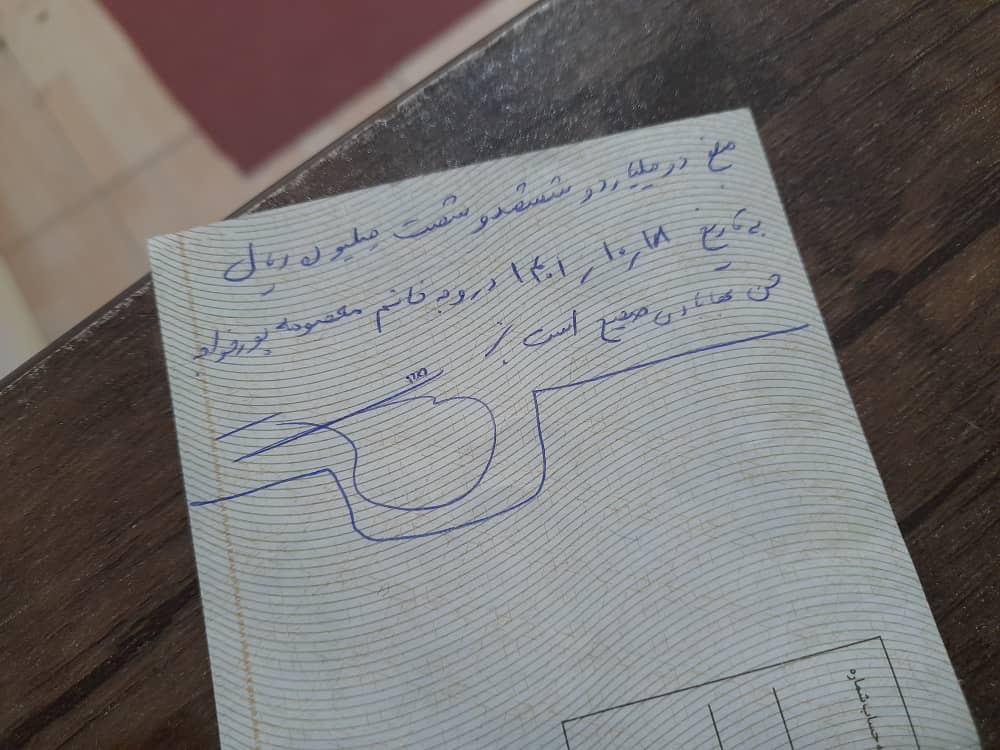 مبلغ دو میلیارد و ششصد و شصت میلیون ریال
به تاریخ ۱۴۰۱/۱۰/۱۸ در وجه خانم معصومه پورخواجه
صحیح است
حساب شماره